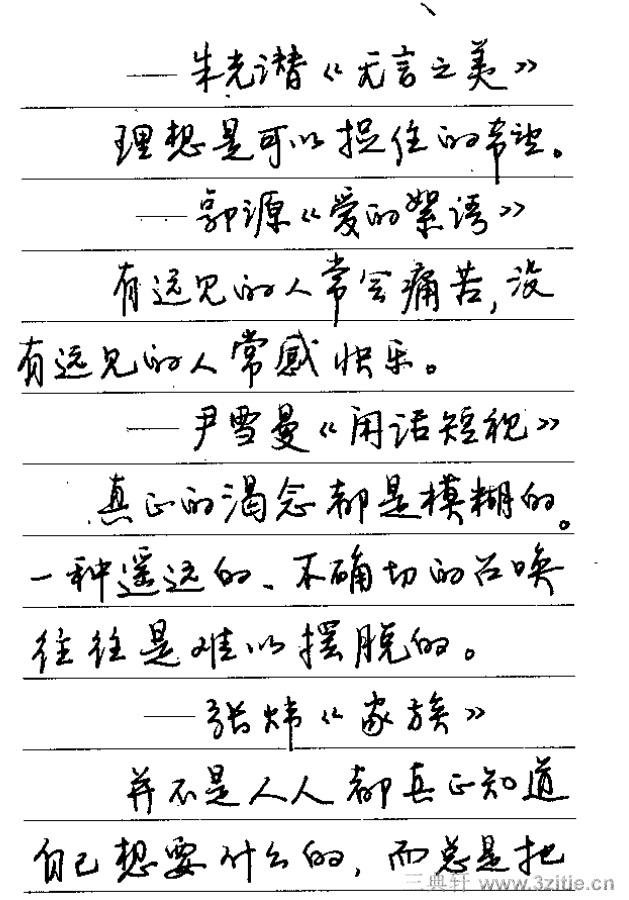 ——朱光潜《无言之美》
理想是可以捉住的帮助。
——郭源《爱的絮语》
有远见的人常会痛苦，没
有远见的人常感快乐。
——尹雪曼《闲话短视》
真正的渴念都是模糊的。
一种遥远的、不确切的召唤
往往是难以摆脱的。
——张炜《家族》
并不是人人都真正知道
自己想要什么的，而总是把
三典轩 www.3zitie.cn